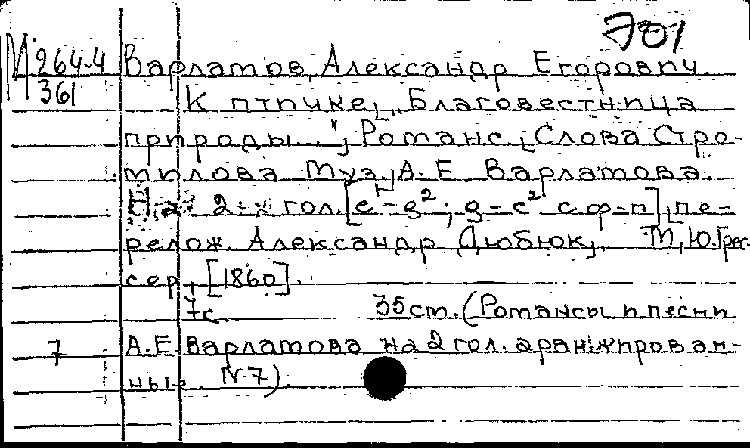 701
М 264-4 Варламов, Александр Егорович.
361 К птичке, „Благовестница
природы...", Романс, Слова Стро-
милова Муз. А. Е Варламова.
На 2-х гол. [e'-g²; g-c² с ф-п], пе-
релож. Александр Дюбюк, М, Ю. Грес-
сер, [1860].
7с 35см. (Романсы и песни
7 А. Е. Варламова на 2 гол. аранжирован-
ные. N. 7)